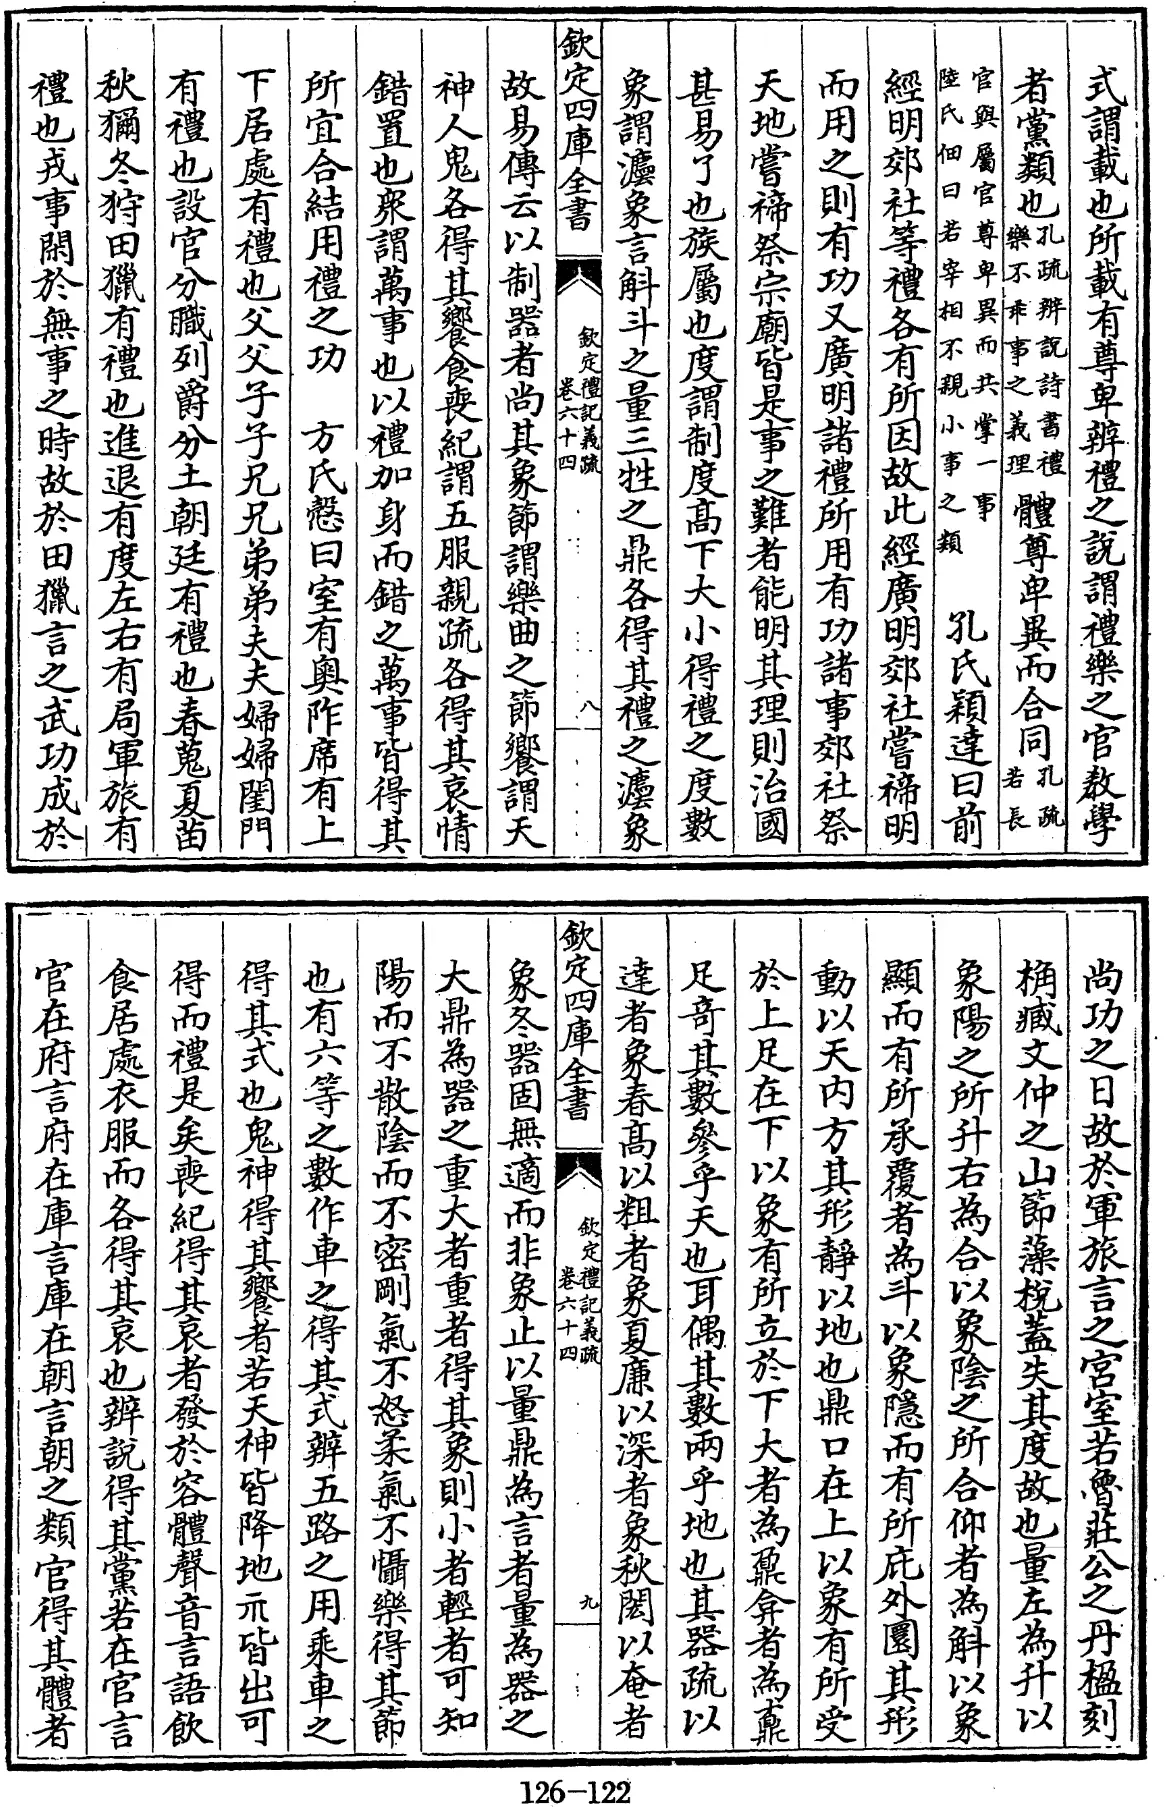 式謂載也所載有尊卑辨禮之說謂禮樂之官教學
者黨類也孔疏辨說詩書禮樂不乖事之義理體尊卑異而合同孔疏若長
官與屬官尊卑異而共掌一事
陸氏佃曰若宰相不親小事之類 孔氏穎達曰前
經明郊社等禮各有所因故此經廣明郊社嘗禘明
而用之則有功又廣明諸禮所用有功諸事郊社祭
天地嘗禘祭宗廟皆是事之難者能明其理則治國
甚易了也族屬也度謂制度高下大小得禮之度數
象謂灋象言斛斗之量三牲之鼎各得其禮之灋象
欽定四庫全書
欽定禮記義疏
卷六十四
八
故易傳云以制器者尚其象節謂樂曲之節饗謂天
神人鬼各得其饗食喪紀謂五服親疏各得其哀情
錯置也衆謂萬事也以禮加身而錯之萬事皆得其
所宜合結用禮之功 方氏慤曰室有奧阼席有上
下居處有禮也父父子子兄兄弟弟夫夫婦婦閨門
有禮也設官分職列爵分土朝廷有禮也春蒐夏苗
秋獮冬狩田獵有禮也進退有度左右有局軍旅有
禮也戎事閑於無事之時故於田獵言之武功成於
尚功之日故於軍旅言之宮室若魯莊公之丹楹刻
桷臧文仲之山節藻梲蓋失其度故也量左為升以
象陽之所升右為合以象陰之所合仰者為斛以象
顯而有所承覆者為斗以象隱而有所庇外圜其形
動以天内方其形靜以地也鼎口在上以象有所受
於上足在下以象有所立於下大者為鼐弇者為鼒
足奇其數參乎天也耳偶其數兩乎地也其器疏以
達者象春高以粗者象夏廉以深者象秋閎以奄者
欽定四庫全書
欽定禮記義疏
卷六十四
九
象冬器固無適而非象止以量鼎為言者量為器之
大鼎為器之重大者重者得其象則小者輕者可知
陽而不散陰而不密剛氣不怒柔氣不懾樂得其節
也有六等之數作車之得其式辨五路之用乘車之
得其式也鬼神得其饗者若天神皆降地示皆出可
得而禮是矣喪紀得其哀者發於容體聲音言語飲
食居處衣服而各得其哀也辨說得其黨若在官言
官在府言府在庫言庫在朝言朝之類官得其體者
126-122